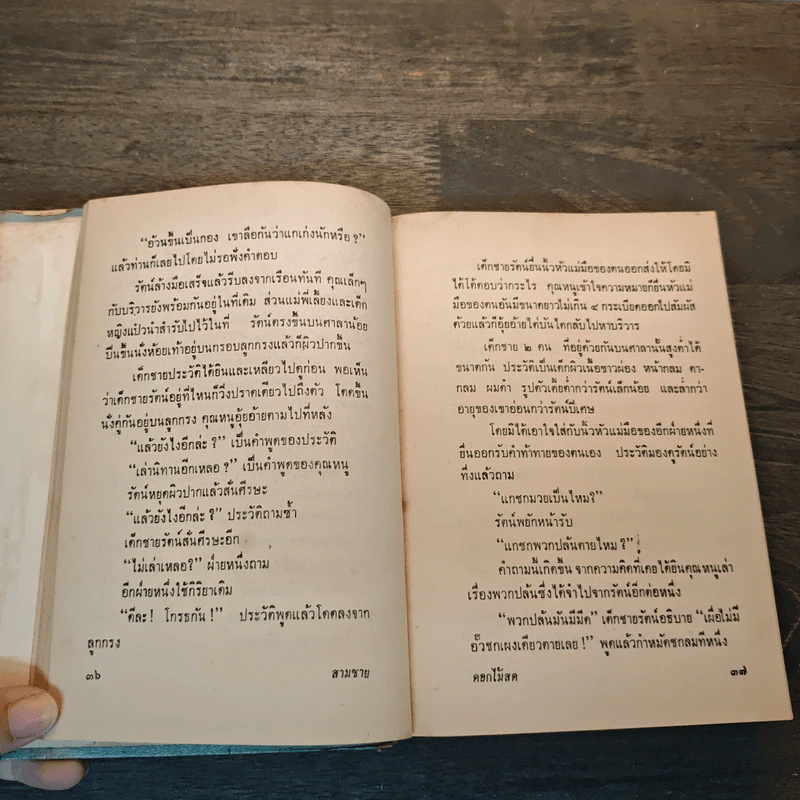 “อ้วนขึ้นเป็นกอง เขาลือกันว่าแกเก่งนักหรือ ?”
แล้วท่านก็เลยไปโดยไม่รอฟังคำตอบ
รัตน์ล้างมือเสร็จแล้วรีบลงจากเรือนทันที คุณเล็กๆ
กับบริวารยังพร้อมกันอยู่ในที่เดิม ส่วนแม่พี่เลี้ยงและเด็ก
หญิงแป๋วนำสำรับไปไว้ในที่ รัตน์ตรงขึ้นบนศาลาน้อย
ปีนขึ้นนั่งห้อยเท้าอยู่บนกรอบลูกกรงแล้วก็ผิวปากขึ้น
เด็กชายประวัติได้ยินและเหลียวไปดูก่อน พอเห็น
ว่าเด็กชายรัตน์อยู่ที่ไหนก็วิ่งปราดเดียวไปถึงตัว โดดขึ้น
นั่งคู่กันอยู่บนลูกกรง คุณหนูอุ้ยอ้ายตามไปทีหลัง
“แล้วยังไงอีกล่ะ ?” เป็นคำพูดของประวัติ
“เล่านิทานอีกเหลอ ?” เป็นคำพูดของคุณหนู
รัตน์หยุดผิวปากแล้วสั่นศีรษะ
“แล้วยังไงอีกล่ะ ?” ประวัติถามซ้ำ
เด็กชายรัตน์สั่นศีรษะอีก
“ไม่เล่าเหลอ?” ฝ่ายหนึ่งถาม
อีกฝ่ายหนึ่งใช้กิริยาเดิม
“ดีละ ! โกรธกัน !” ประวัติพูดแล้วโดดลงจาก
ลูกกรง
๓๖ สามชาย
เด็กชายรัตน์ยื่นนิ้วหัวแม่มือของตนออกส่งให้โดยมิ
ได้โต้ตอบว่ากระไร คุณหนูเข้าใจความหมายก็ยื่นหัวแม่
มือของตนอันมีขนาดยาวไม่เกิน ๔ กระเบียดออกไปสัมผัส
ด้วยแล้วก็อุ้ยอ้ายไต่บันไดกลับไปหาบริวาร
เด็กชาย ๒ คน ที่อยู่ด้วยกันบนศาลานั้นสูงต่ำได้
ขนาดกัน ประวัติเป็นเด็กผิวเนื้อขาวผ่อง หน้ากลม ตา-
กลม ผมดำ รูปตัวเตี้ยต่ำกว่ารัตน์เล็กน้อย และล่ำกว่า
อายุของเขาอ่อนกว่ารัตน์ปีเศษ
โดยมิได้เอาใจใส่กับนิ้วหัวแม่มือของอีกฝ่ายหนึ่งที่
ยื่นออกรับคำท้าทายของตนเอง ประวัติมองดูรัตน์อย่าง
ทึ่งแล้วถาม
“แกชกมวยเป็นไหม?”
รัตน์พยักหน้ารับ
“แกชกพวกปล้นตายไหม ?”
คำถามนี้เกิดขึ้น จากความคิดที่เคยได้ยินคุณหนูเล่า
เรื่องพวกปล้นซึ่งได้จำไปจากรัตน์อีกต่อหนึ่ง
“พวกปล้นมันมีมีด” เด็กชายรัตน์อธิบาย “เผื่อไม่มี
อั๊วชกเผงเดียวตายเลย !” พูดแล้วกำหมัดชกลมทีหนึ่ง
ดอกไม้สด ๓๗